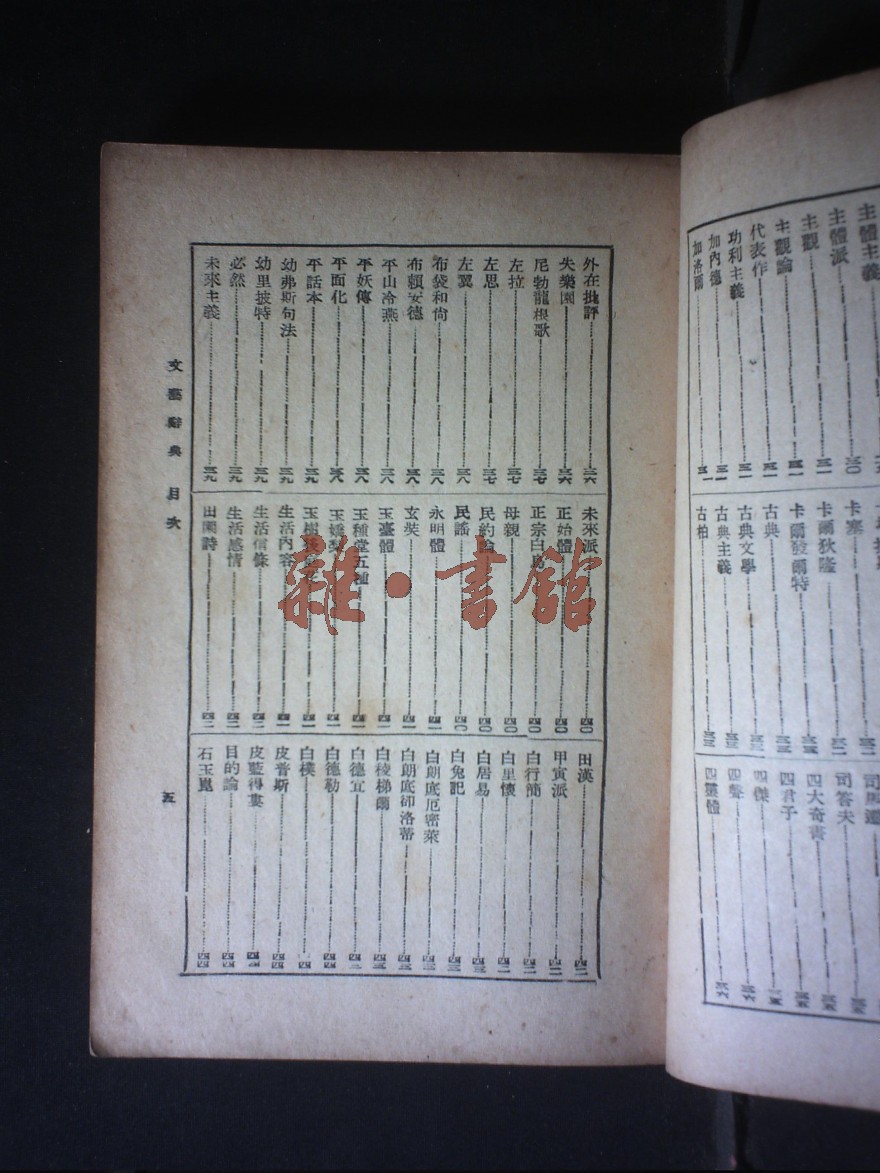 主體主義
主體派
主觀
主觀論
代表作
功利主義
加內德
加洛爾
卡塞
卡爾狄隆
卡爾設爾特
古典
古典文學
古典主義
古柏
司馬遷
司答夫
四大奇書
四君子
四傑
四聲
四靈體
外在批評 三六
失樂園 三六
尼勃龍根歌 三七
左拉 三七
左思 三七
左翼 三八
布袋和尙 三八
布賴安德 三八
平山冷燕 三八
平妖傳 三八
平面化 三八
平話本 三九
幼弗斯句法 三九
幼里披特 三九
必然 三九
未來主義 三九
未來派 四〇
正始體 四〇
正宗白鳥 四〇
母親 四〇
民約論 四〇
民謠 四〇
永明體 四一
玄奘 四一
玉臺體 四一
玉種堂五種 四一
玉嬌梨 四一
玉樹後庭花 四一
生活內容 四一
生活信條 四二
生活感情 四二
田園詩 四二
田漢 四二
甲寅派 四二
白行簡 四二
白里懷 四二
白居易 四三
白兔記 四三
白朗底厄密萊 四三
白朗底卻洛蒂 四三
白稜梯爾 四三
白德宜
白德勒 四四
白樸 四四
皮普斯 四四
皮藍得婁 四四
目的論 四四
石玉崑 四四
文藝辭典 目次
五
雜·書館